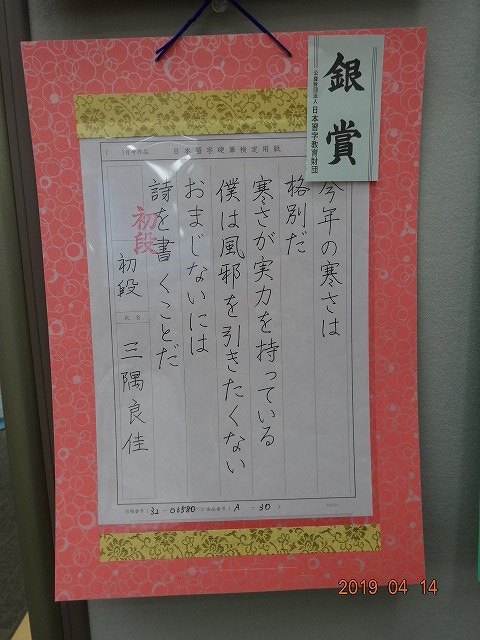 銀賞
公益財団法人 日本習字教育財団
日本習字硬筆検定用紙
今年の寒さは
格別だ
寒さが実力を持っている
僕は風邪を引きたくない
おまじないには
詩を書くことだ
初段
初段
氏名
三隅良佳
(32-03580
(A-30)
2019 04 14